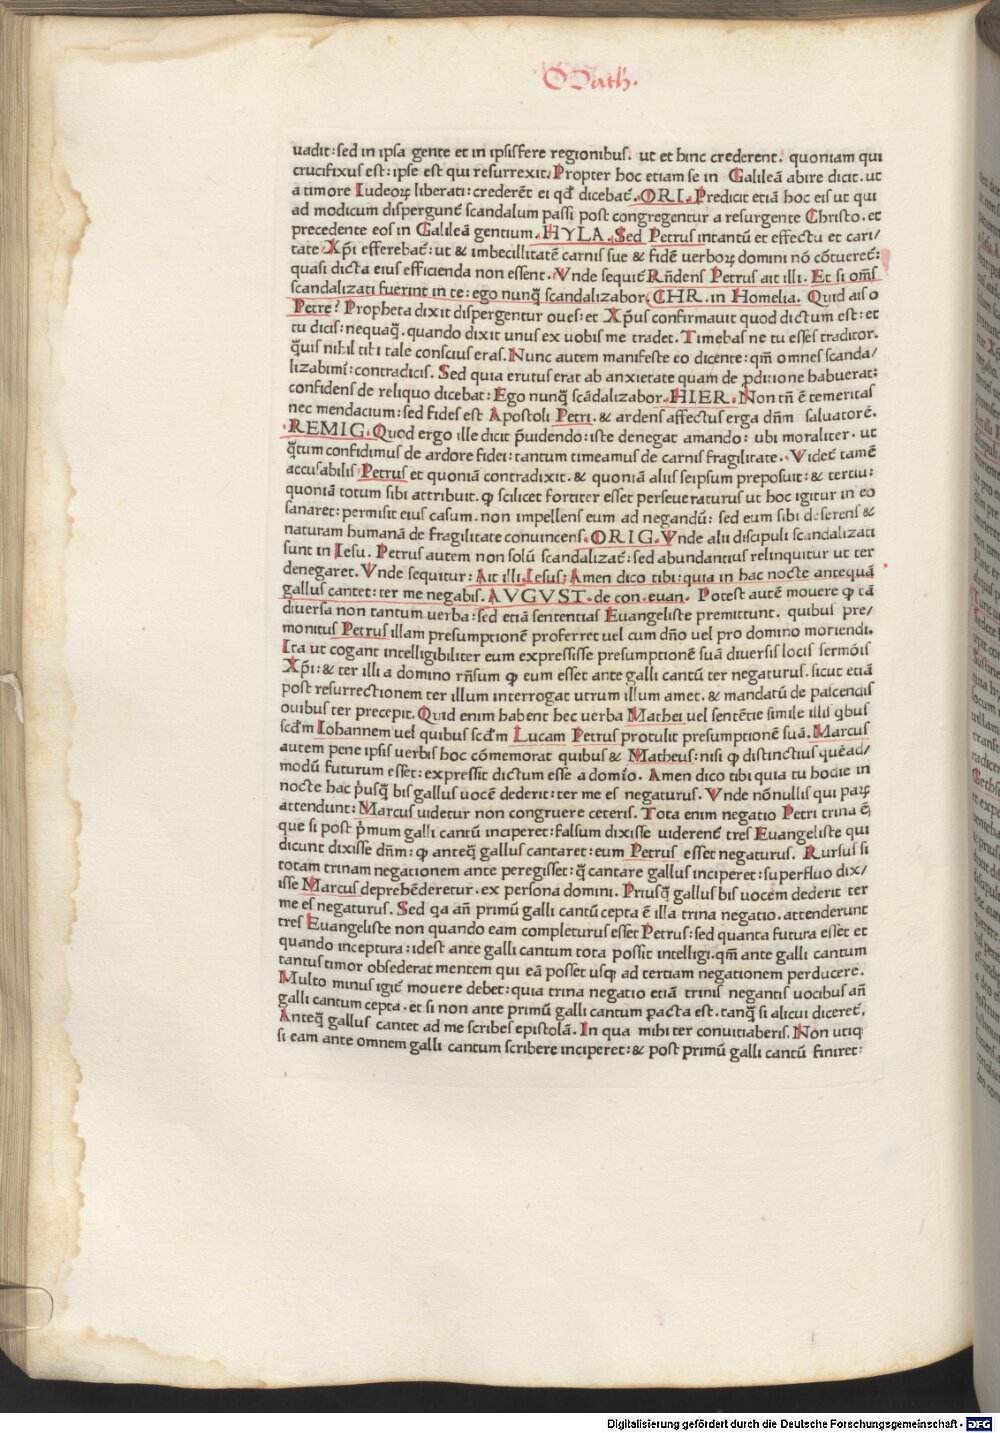 Math.
uadit: sed in ipsa gente et in ipsisfere regionibus. ut et hinc crederent. quoniam qui
crucifixus est: ipse est qui resurrexit. Propter hoc etiam se in Galileã abire dicit. ut
a timore Iudeoꝝ liberati: crederẽt ei qđ dicebat̃. ORI. Predicit etiã hoc eis ut qui
ad modicum dispergunt̃ scandalum passi post congregentur a resurgente Christo. et
precedente eos in Galileã gentium. HYLA. Sed Petrus intantũ et effectu et cari/
tate Xp̃i efferebat̃: ut & imbecillitatẽ carnis sue & fidẽ uerboꝝ domini nõ cõtueret̃:
quasi dicta eius efficienda non essent. Vnde sequit̃ Rñdens Petrus ait illi. Et si om̃s
scandalizati fuerint in te: ego nunq̃ scandalizabor. CHR. in Homelia. Quid ais o
Petre? Propheta dixit dispergentur oues: et Xp̃us confirmauit quod dictum est: et
tu dicis: nequaq̃. quando dixit unus ex uobis me tradet. Timebas ne tu esses traditor.
q̃uis nihil tibi tale conscius eras. Nunc autem manifeste eo dicente: qm̃ omnes scanda/
lizabimĩ: contradicis. Sed quia erutus erat ab anxietate quam de ꝑditione habuerat:
confidens de reliquo dicebat: Ego nunq̃ scãdalizabor. HIER. Non tñ ẽ temeritas
nec mendacium: sed fides est Apostoli Petri. & ardens affectus erga dñm saluatorẽ.
REMIG. Quod ergo ille dicit p̃uidendo: iste denegat amando: ubi moraliter. ut
q̃tum confidimus de ardore fidei: tantum timeamus de carnis fragilitate. Videt̃ tamẽ
accusabilis Petrus et quoniã contradixit. & quoniã aliis seipsum preposuit: & tertiu:
quoniã totum sibi attribuit. ꝙ scilicet fortiter esset perseueraturus ut hoc igitur in eo
sanaret: permisit eius casum. non impellens eum ad negandũ: sed eum sibi deserens &
naturam humanã de fragilitate conuincens. ORIG. Vnde alii discipuli scandalizati
sunt in Iesu. Petrus autem non solũ scandalizat̃: sed abundantius relinquitur ut ter
denegaret. Vnde sequitur: Ait illi Iesus; Amen dico tibi: quia in hac nocte antequã
gallus cantet: ter me negabis. AVGVST. de con. euan. Potest autẽ mouere ꝙ tã
diuersa non tantum uerba: sed etiã sententias Euangeliste premittunt. quibus pre/
monitus Petrus illam presumptionẽ proferret uel cum dño uel pro domino moriendi.
Ita ut cogant intelligibiliter eum expressisse presumptionẽ suã diuersis locis sermõis
Xp̃i: & ter illi a domino rñsum ꝙ eum esset ante galli cantũ ter negaturus. sicut etiã
post resurrectionem ter illum interrogat utrum illum amet. & mandatũ de pascendis
ouibus ter precepit. Quid enim habent hec uerba Mathei uel sentẽtie simile illis qbus
scđm Iohannem uel quibus scđm Lucam Petrus protulit presumptionẽ suã. Marcus
autem pene ipsis uerbis hoc cõmemorat quibus & Matheus: nisi ꝙ distinctius quẽad/
modũ futurum esset: expressit dictum esse a domĩo. Amen dico tibi quia tu hodie in
nocte hac p̃usq̃ bis gallus uocẽ dederit: ter me es negaturus. Vnde nõnullis qui paꝝ
attendunt: Marcus uidetur non congruere ceteris. Tota enim negatio Petri trina ẽ
que si post p̃mum galli cantũ inciperet: falsum dixisse uiderent̃ tres Euangeliste qui
dicunt dixisse dñm: ꝙ anteq̃ gallus cantaret: eum Petrus esset negaturus. Rursus si
totam trinam negationem ante peregisset: q̃ cantare gallus inciperet: superfluo dix/
isse Marcus deprehẽderetur. ex persona domini. Priusq̃ gallus bis uocem dederit ter
me es negaturus. Sed qa añ primũ galli cantũ cepta ẽ illa trina negatio. attenderunt
tres Euangeliste non quando eam completurus esset Petrus: sed quanta futura esset et
quando inceptura: idest ante galli cantum tota possit intelligi. qm̃ ante galli cantum
tantus timor obsederat mentem qui eã posset usq; ad tertiam negationem perducere.
Multo minus igit̃ mouere debet: quia trina negatio etiã trinis negantis uocibus añ
galli cantum cepta. et si non ante primũ galli cantum ꝑacta est. tanq̃ si alicui diceret̃.
Anteq̃ gallus cantet ad me scribes epistolã. In qua mihi ter conuitiaberis. Non utiq;
si eam ante omnem galli cantum scribere inciperet: & post primũ galli cantũ finiret:
Digitalisierung gefördert durch die Deutsche Forschungsgemeinschaft - DFG